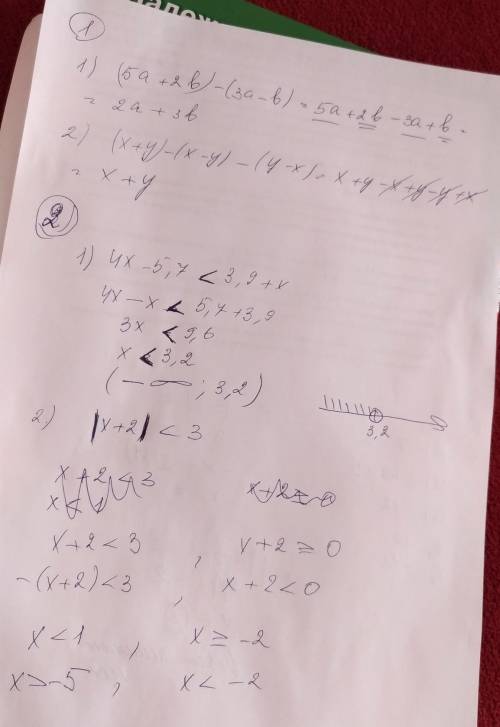 надеж
1
1) (5a+2b)-(3a-b)=5a+2b-3a+b=
=2a+3b
2) (x+y)-(x-y)-(y-x)=x+y-x+y-y+x
= x+y
2
1) 4x-5,7<3,9+x
4x-x<5,7+3,9
3x<9,6
x<3,2
(-∞; 3,2)
3,2
2) |x+2|<3
x+2<3
x+2<3, x+2≥0
-(x+2)<3, x+2<0
x<1, x≥-2
x>-5, x<-2